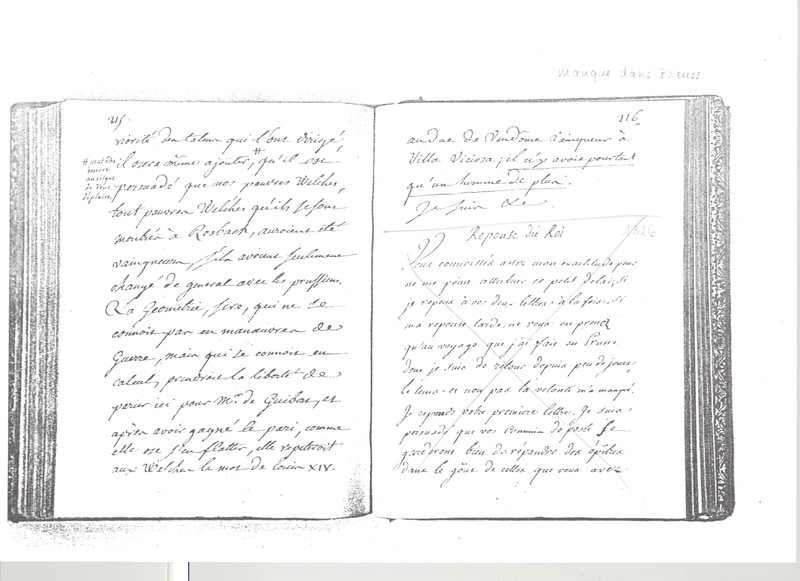 manque dans Preuss
215
riorité des talens qui l'ont dirigé,
il osera même ajouter,# qu'il est
# peutêtre
encore
au risque
de vous
déplaire
persuadé que nos pauvres Welches,
tout pauvres Welches qu'ils se sont
montrés à Rosbach, auroient été
vainqueurs, s'ils avoient seulement
changé de general avec les prussiens.
La Geometrie, sire, qui ne se
connoit pas en manœuvres de
Guerre, mais qui se connoit en
calcul, prendroit la liberté de
parier ici pour Mr. de Guibert, et
après avoir gagné le pari, comme
elle ose s'en flatter, elle repeteroit
aux Welches le mot de Louis XIV.
216
au duc de Vendome vainqueur à
Villa Viciosa; il n'y avoit pourtant
qu'un homme de plus.
Je suis &c.
Reponse du Roi
Vous connoissés assez mon exactitude pour
ne me point attribuer ce petit delai; si
je repons à vos deux lettres à la fois, si
ma reponse tarde, ne vous en prenez
qu'au voyage que j'ai fait en Prusse
dont je suis de retour depuis peu de jours;
le tems et non pas la volonté m'a manqué.
Je reponds votre premiere lettre. Je suis
persuadé que vos Commis de poste se
garderont bien de répandre des épitres
dans le goût de celles que vous avez